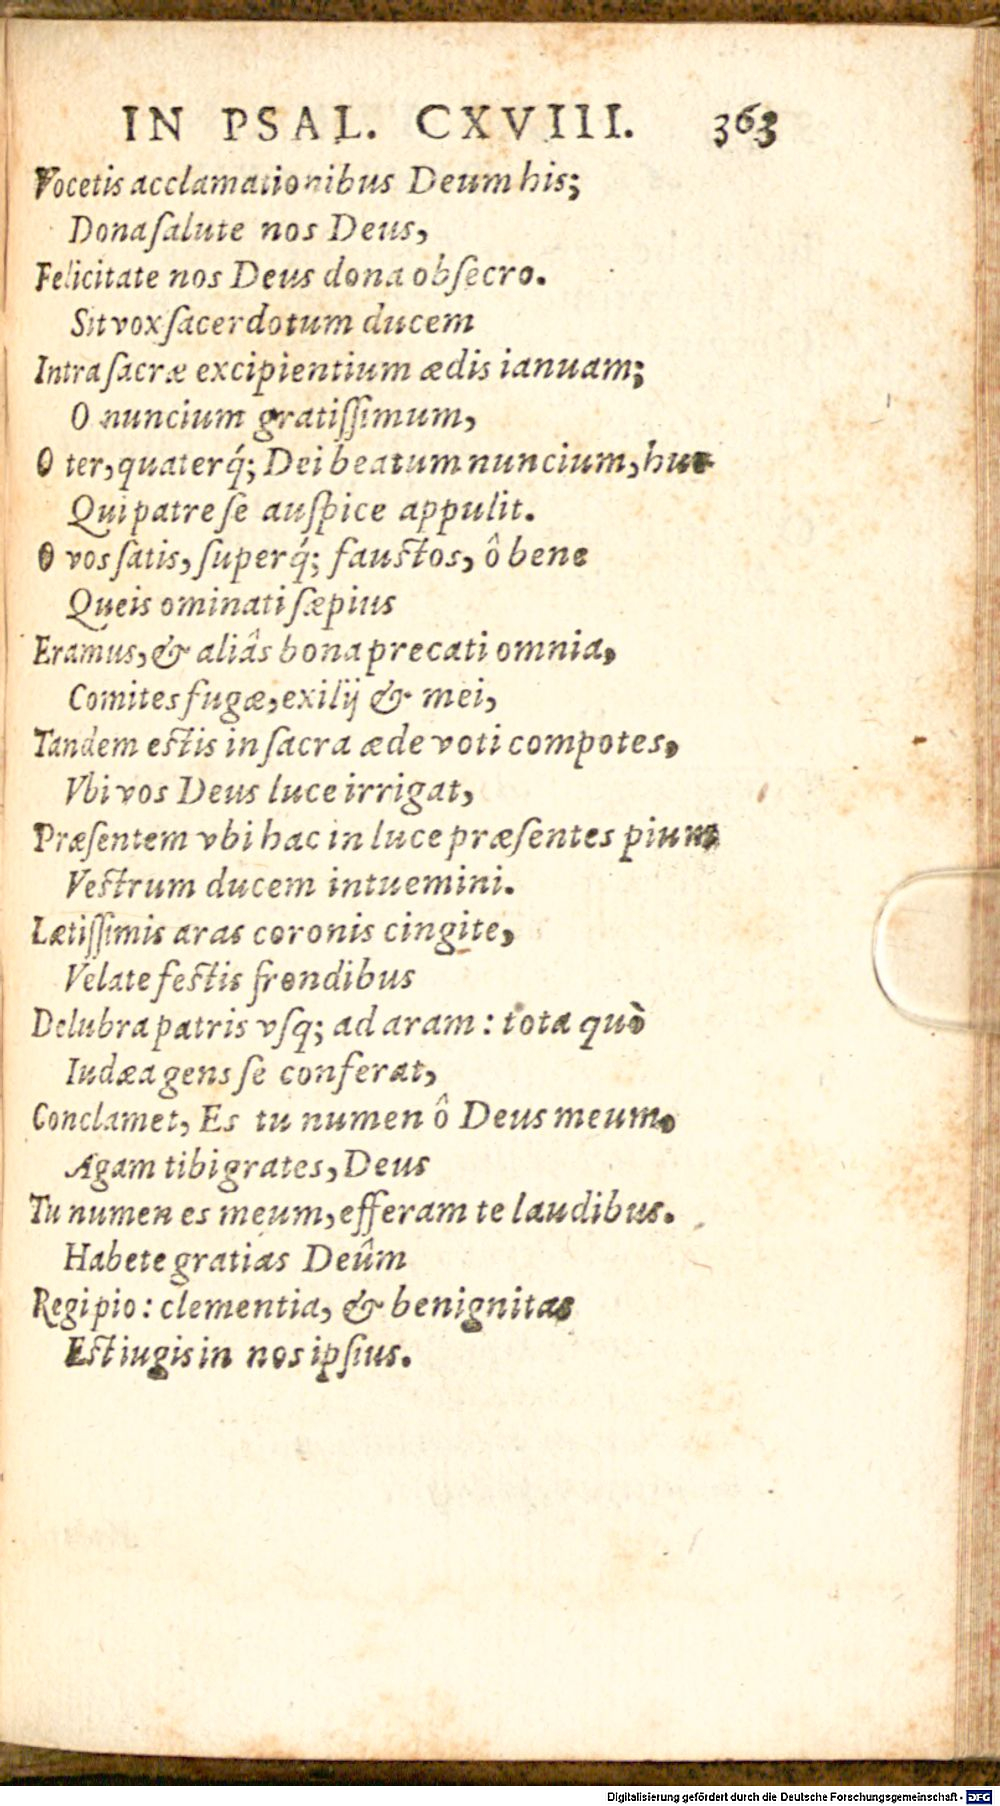 IN PSAL. CXVIII. 363
Vocetis acclamationibus Deum his;
Dona ſalute nos Deus,
Felicitate nos Deus dona obſecro.
Sit vox ſacerdotum ducem
Intra ſacræ excipientium ædis ianuam;
O nuncium gratiſſimum,
O ter, quaterq́; Dei beatum nuncium, huc
Qui patre ſe auſpice appulit.
O vos ſatis, ſuperq́; fauſtos, ô bene
Queis ominati ſæpius
Eramus, & aliâs bona precati omnia,
Comites fugæ, exilij & mei,
Tandem eſtis in ſacra æde voti compotes,
Vbi vos Deus luce irrigat,
Præſentem vbi hac in luce præſentes pium
Veſtrum ducem intuemini.
Lætiſſimis aras coronis cingite,
Velate feſtis frondibus
Delubra patris vſq; ad aram: tota quò
Iudæa gens ſe conferat,
Conclamet, Es tu numen ô Deus meum,
Agam tibi grates, Deus
Tu numen es meum, efferam te laudibus.
Habete gratias Deûm
Regi pio: clementia, & benignitas
Eſt iugis in nos ipſius.
Digitalisierung gefördert durch die Deutsche Forschungsgemeinschaft - DFG